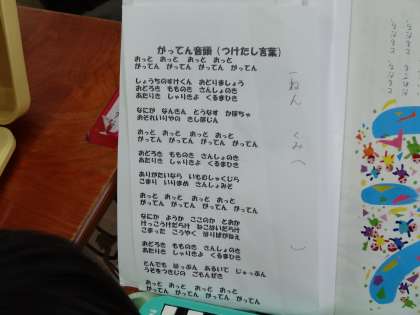 がってん音頭（つけたし言葉）
おっと　おっと　おっと　おっと
がってん　がってん　がってん　がってん
しょうちのすけくん　おどりましょう
おどろき　もものき　さんしょのき
あたりき　しゃりきよ　くるまひき
なにか　なんきん　とうなす　かぼちゃ
おそれいりやの　きしぼじん
おっと　おっと　おっと　おっと
がってん　がってん　がってん　がってん
おどろき　もものき　さんしょのき
あたりき　しゃりきよ　くるまひき
ありがたいなら　いもむしゃくじら
こまり　いりまめ　さんしょみそ
おっと　おっと　おっと　おっと
がってん　がってん　がってん　がってん
なにか　ようか　ここのか　とおか
けっこうけだらけ　ねこはいだらけ
こまった　こうやく　はりばがねえ
おどろき　もものき　さんしょのき
あたりき　しゃりき　くるまひき
とんでも　はっぷん　あるいて　じゅっぷん
うそをつきじの　ごもんぜき
おっと　おっと　おっと　おっと
がってん　がってん　がってん　がってん
一ねん
くみ（
）